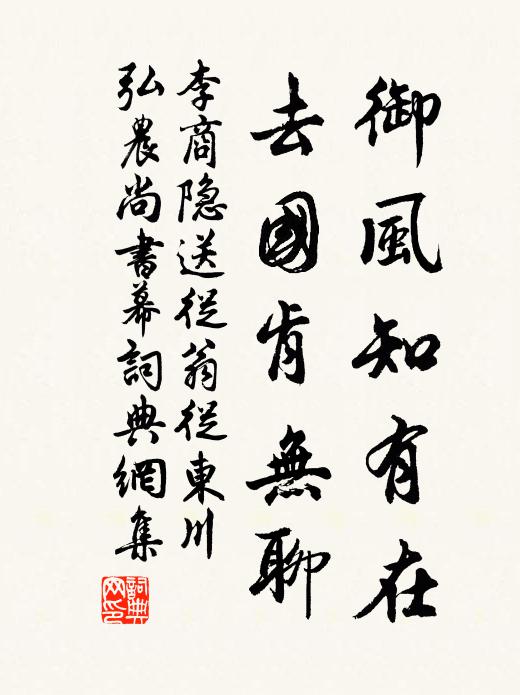 御風知有在
去國肯無聊
李商隐送從翁從東川
弘農尚書幕詞典網集
詞典
网印